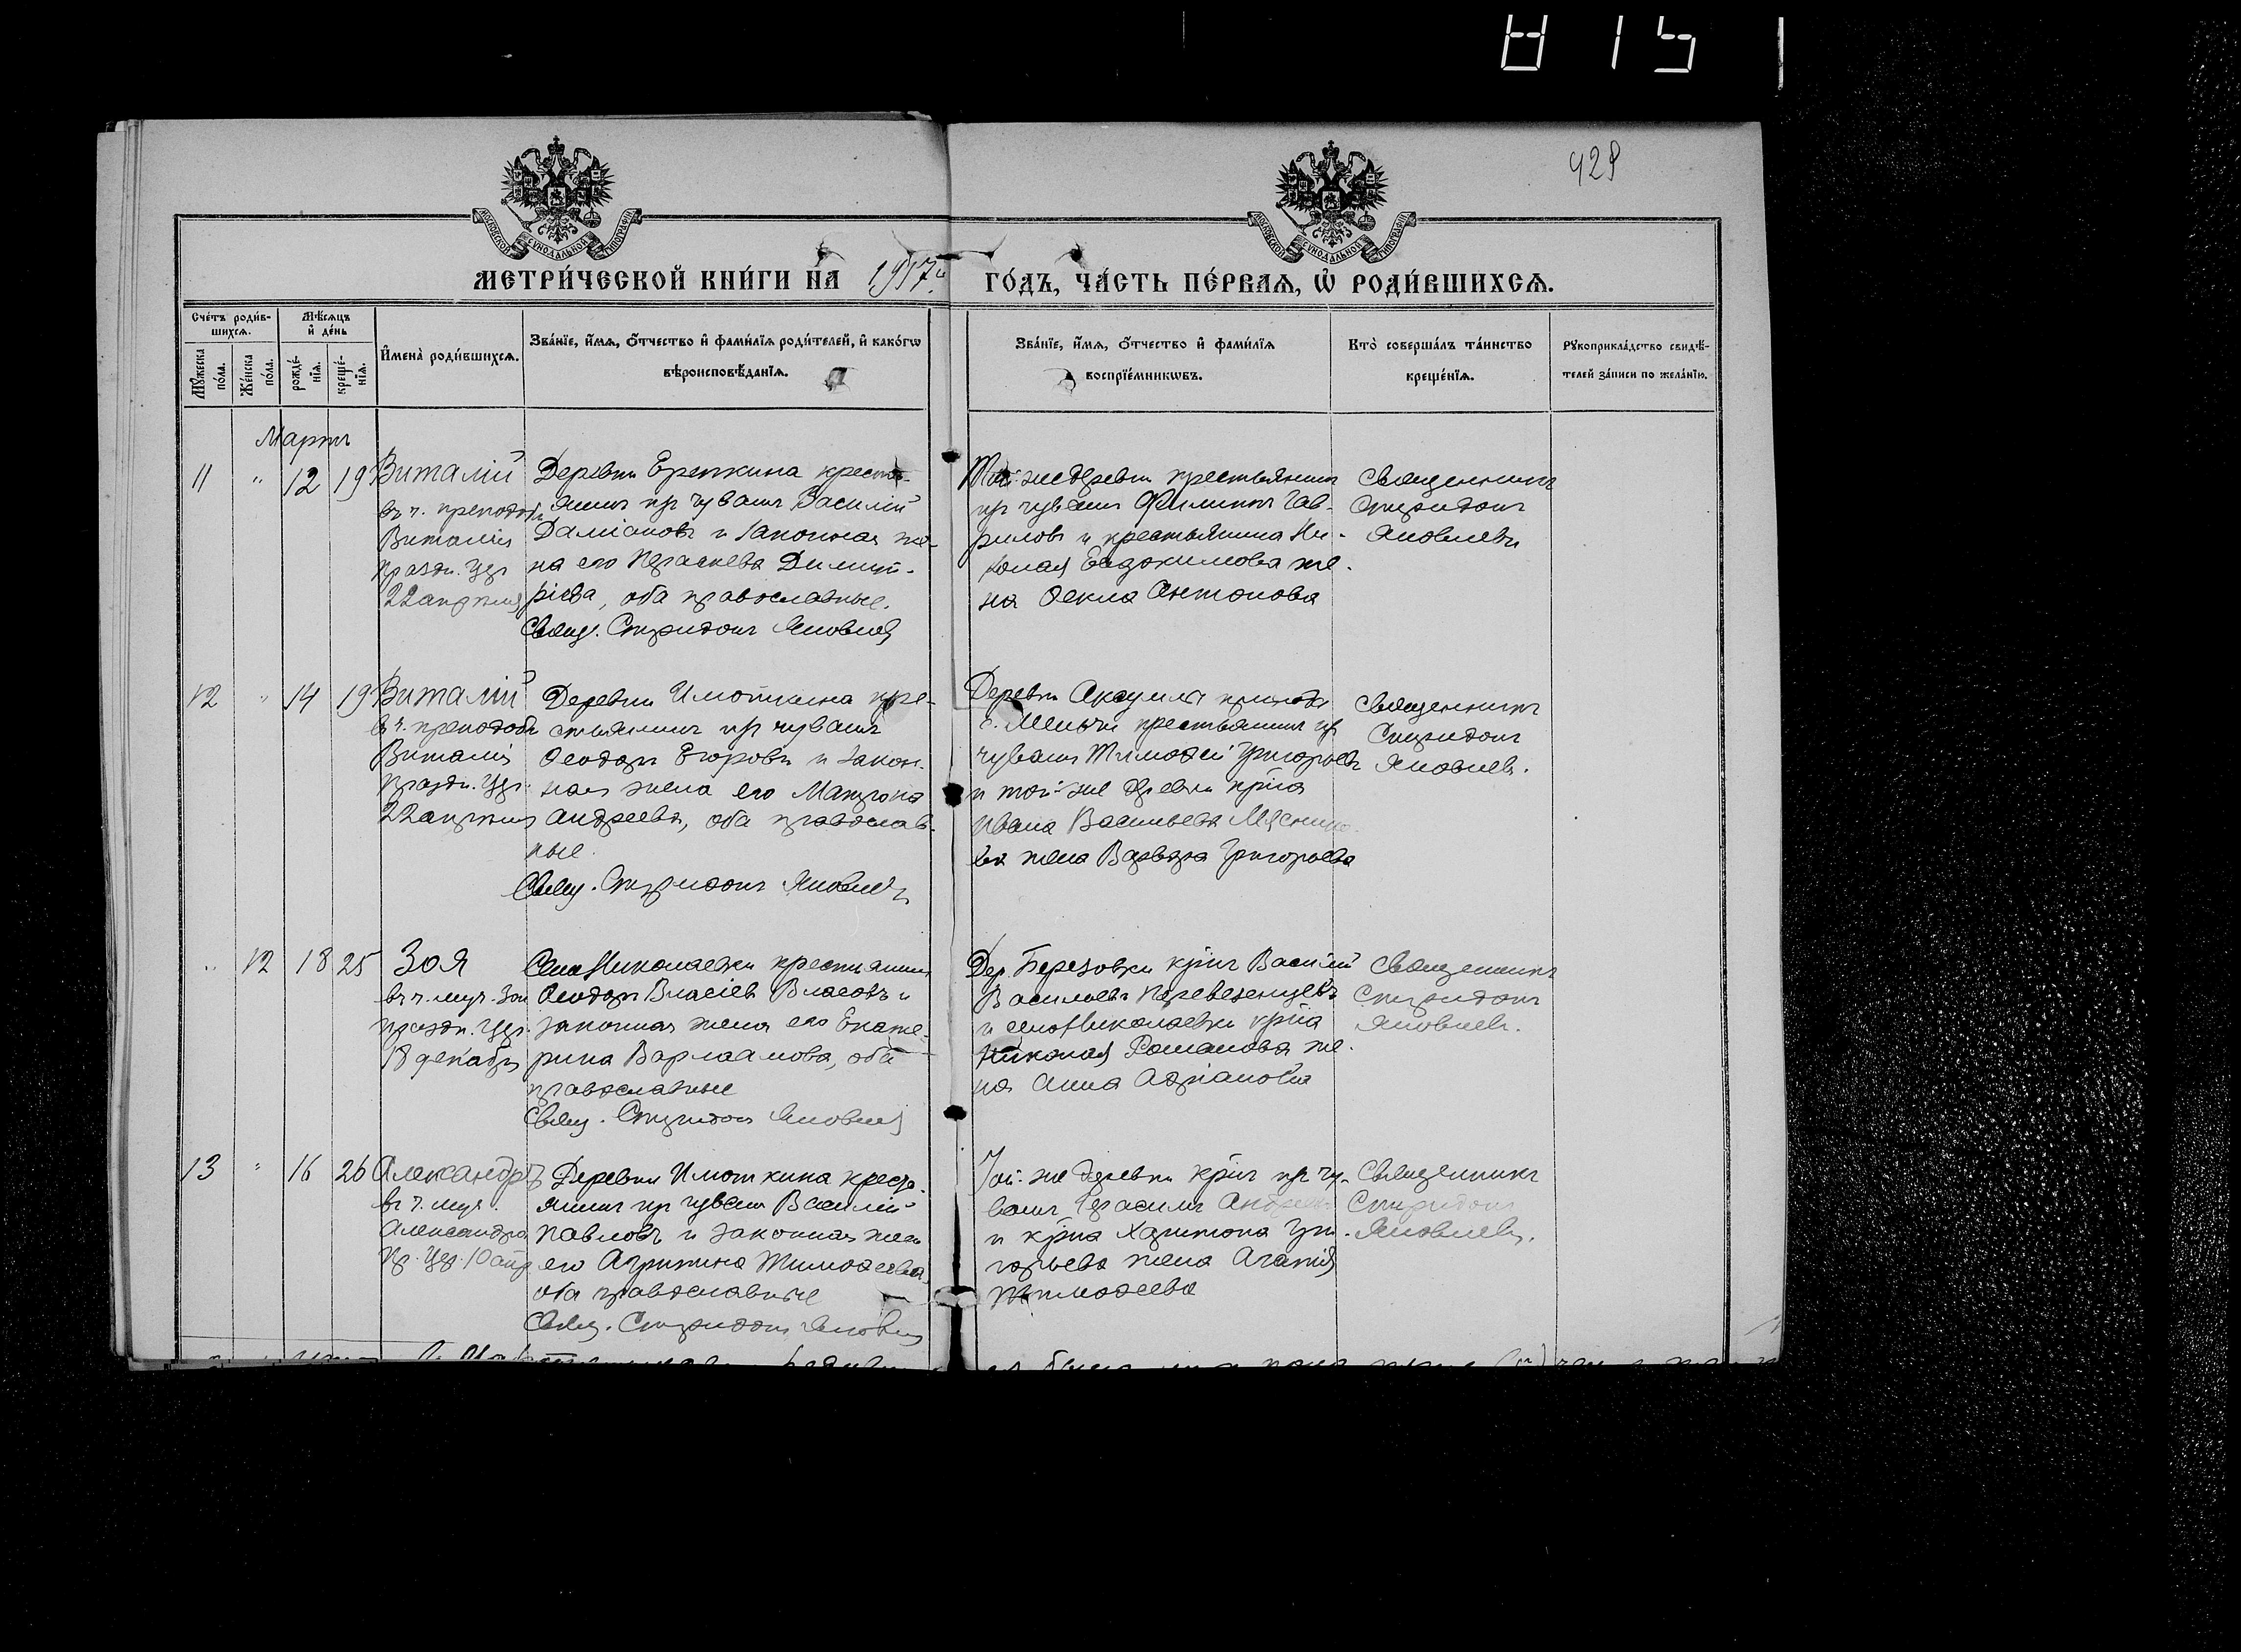 815
429
МОСКОВСКОЙ СѴНОДАЛЬНОЙ ТИПОГРАФІИ
МОСКОВСКОЙ СѴНОДАЛЬНОЙ ТИПОГРАФІИ
МЕТРИ́ЧЕСКОЙ КНИ́ГИ НА 1917 й ГО́ДЪ, ЧА́СТЬ ПЕ́РВАЯ, Ѡ РОДИ́ВШИХСЯ.
Сче́тъ роди́в-
шихся.
Мѣ́сяцъ
и҆ де́нь
Му́жеска
по́ла.
Же́нска
по́ла.
рожде́-
нїя.
креще́-
нїя.
И҆мена̀ роди́вшихся.
Зва́нїе, и҆́мя, о҆́тчество и҆ фами́лїя роди́телей, и҆ како́гѡ
вѣроисповѣ́данїя.
Зва́нїе, и҆́мя, о҆́тчество и҆ фами́лїя
воспрїе́мникѡвъ.
Кто̀ соверша́лъ та́инство
креще́нїя.
Рꙋкоприкла́дство свидѣ́-
телей за́писи по жела́нїю.
Мартъ
11 " 12 19 Виталій
въ ч. преподоб
Виталія
праздн. цер
22 апрѣля
Деревни Ерепкина кресть-
янинъ изъ чувашъ Василій
Даміановъ и законная же-
на его Параскева Димит-
ріева, оба православные.
Свящ. Спиридонъ Яковлевъ
Той-же деревни крестьянинъ
изъ чувашъ Филиппъ Гав-
риловъ и крестьянина Ни-
колая Евдокимова же-
на Ѳекла Антонова
Священникъ
Спиридонъ
Яковлевъ
12 " 14 19 Виталій
въ ч. преподоб
Виталія
праздн. цер.
22 апрѣля
Деревни Имоткина кре-
стьянинъ изъ чувашъ
Ѳеодоръ Егоровъ и закон-
ная жена его Матрона
Андреева, оба православ-
ные.
Свящ. Спиридонъ Яковлевъ
Деревни Аксумла прихода
с. крестьянинъ изъ
чувашъ Тимоѳей Григорьевъ
и той-же деревни кр-на
Ивана Васильева
жена Варвара Григорьева
Священникъ
Спиридонъ
Яковлевъ.
" 12 18 25 Зоя
въ ч. муч. Зои
праздн. цер.
18 декабря
Села Николаевки крестьянинъ
Ѳеодоръ Власіевъ Власовъ и
законная жена его Екате-
рина Варлаамова, оба
православные
Свящ. Спиридонъ Яковлевъ
Дер. Березовки кр-нъ Василій
Васильевъ Перевезенцевъ
и села Николаевки кр-на
Николая Романова же-
на Анна Адріанова
Священникъ
Спиридонъ
Яковлевъ.
13 " 16 26 Александръ
въ ч. муч.
Александра
Пр. цер. 10 апр
Деревни Имоткина кресть-
янинъ изъ чувашъ Василій
Павловъ и законная жена
его Агрипина Тимоѳеева
оба православные
Свящ. Спиридонъ Яковлевъ
Той-же деревни кр-нъ изъ чу-
вашъ Герасимъ Андреевъ
и кр-на Харитона Гри-
горьева жена Агапія
Тимоѳеева
Священникъ
Спиридонъ
Яковлевъ.